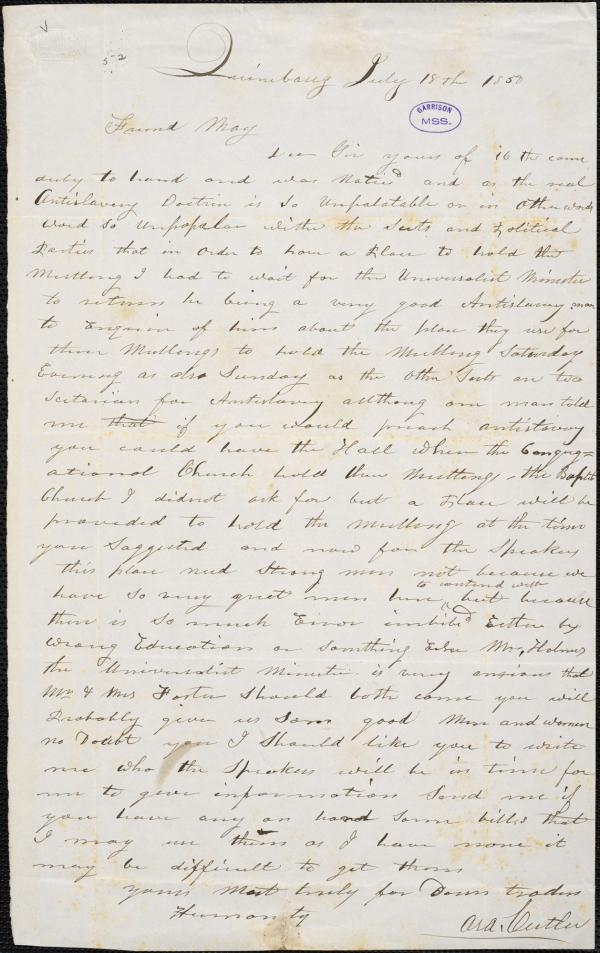 5-2
Quinebaug July 18th 1850
GARRISON
MSS.
Friend May
Dear Sir yours of 16th came
duly to hand and was Noticd and as the real
Antislavery Doctrin is so Unpalatable or in Other words
word so Unpopular withe the Sects and Political
Parties that in order to have a Place to hold the
Meettong I had to wait for the Universalist Minister
to return he being a very good Antislavery man
to Enquire of him about the place they use for
their Meetongs to hold the Meettong Saturday
Evening as also Sunday as the Other Sects are too
Sectarian for Antislavery allthoug one man told
me that if you would preach antislavery
you could have the Hall when the Congreg=
ational Church hold their Meettongs, the Baptist
Church I didnot ask for but a Place will be
provided to hold the meettong at the time
you Saggested and now for the Speakers
this place need Strong men not because we
have so very great men here to contend with but because
there is so much Error imbibd Either by
wrong Education or Somthing Else Mr, Holmes
the Universalist Minister is very anxious that
Mr & Mrs Foster Should both come you will
Probably give us Som good Men and women
no Doubt you I Should like you to write
me who the Speakers will be in time for
me to give information Send me if
you have any on hand some bills that
I may use them as I have none it
may be difficult to get them
yours Most truly for Down troden
Humanity
Asa. Cutler